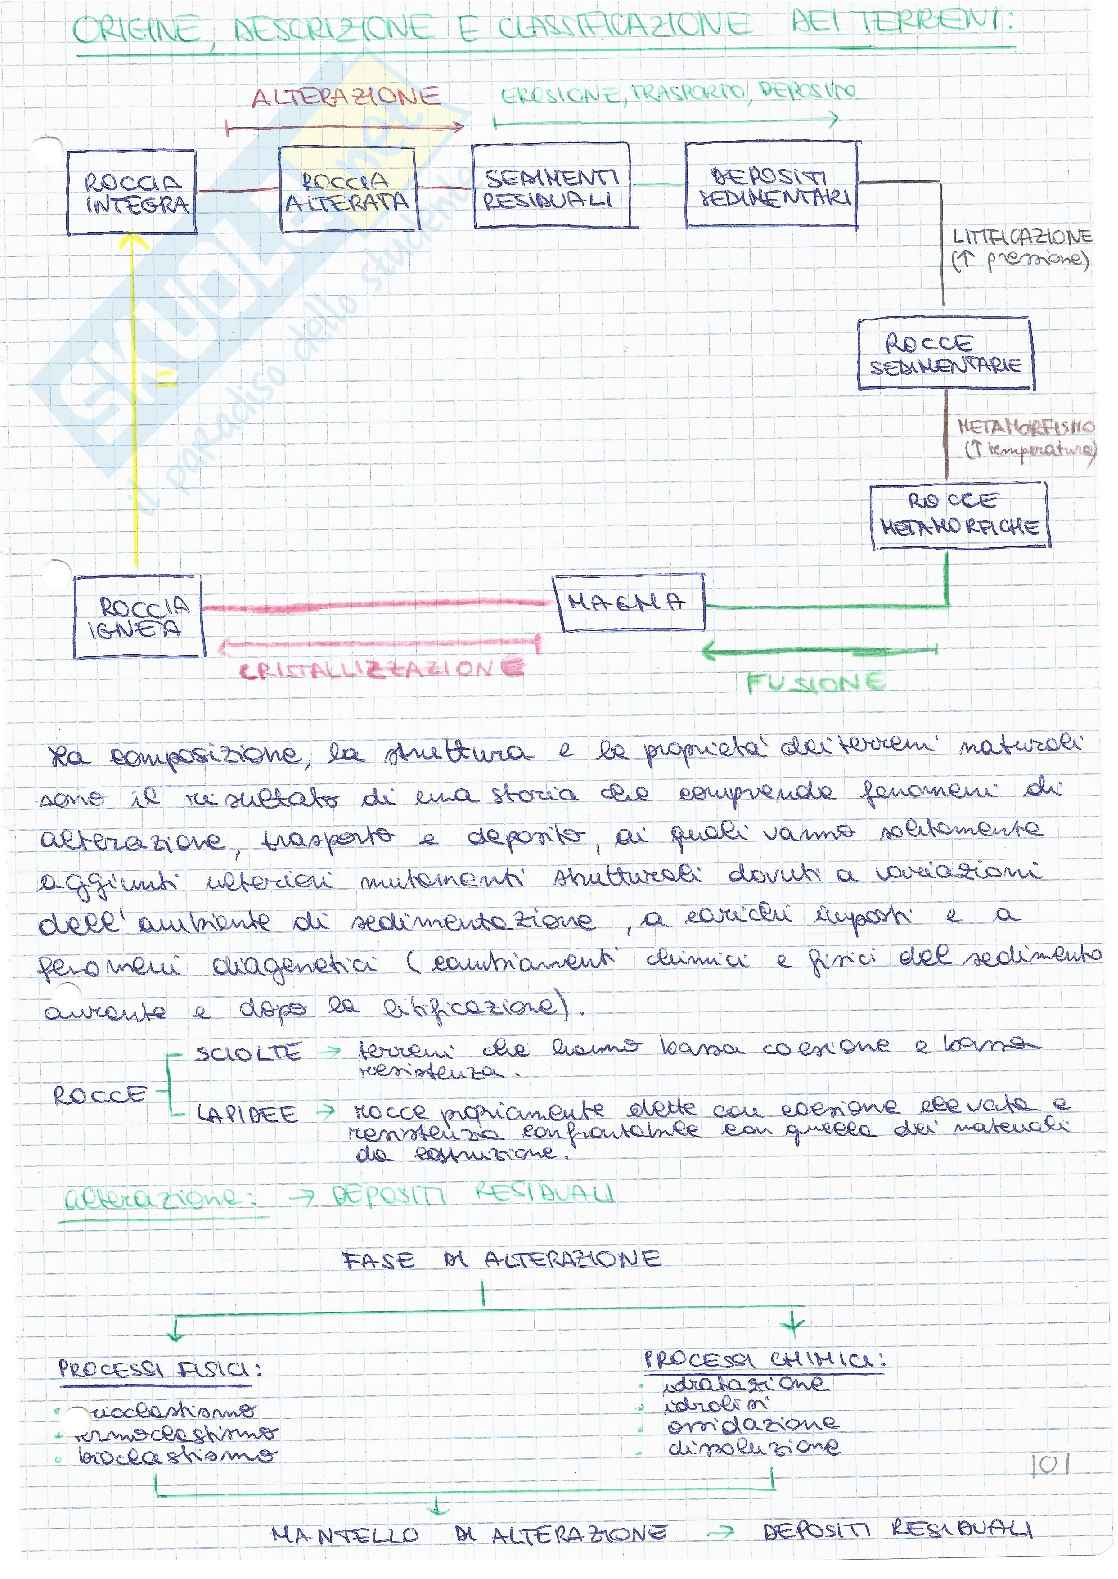 ORIGINE, DESCRIZIONE E CLASSIFICAZIONE DEI TERRENI:
ALTERAZIONE
EROSIONE, TRASPORTO, DEPOSITO
ROCCIA
INTEGRA
ROCCIA
ALTERATA
SEDIMENTI
RESIDUALI
DEPOSITI
SEDIMENTARI
LITIFICAZIONE
(↑ pressione)
ROCCE
SEDIMENTARIE
METAMORFISMO
(↑ temperatura)
ROCCE
METAMORFICHE
ROCCIA
IGNEA
MAGMA
CRISTALLIZZAZIONE
FUSIONE
SKUOLA.net
il paradiso dello studente
La composizione, la struttura e la proprietà dei terreni naturali
sono il risultato di una storia che comprende fenomeni di
alterazione, trasporto e deposito, ai quali vanno solitamente
aggiunti ulteriori mutamenti strutturali dovuti a variazioni
dell'ambiente di sedimentazione, a carichi imposti e a
fenomeni diagenetici (cambiamenti chimici e fisici del sedimento
durante e dopo la litificazione).
ROCCE
SCIOLTE → terreni che hanno bassa coesione e bassa
resistenza.
LAPIDEE → rocce propriamente dette con coesione elevata e
resistenza confrontabile con quella dei materiali
da costruzione.
alterazione: → DEPOSITI RESIDUALI
FASE DI ALTERAZIONE
PROCESSI FISICI:
crioclastismo
termoclastismo
bioclastismo
PROCESSI CHIMICI:
idratazione
idrolisi
ossidazione
dissoluzione
101
MANTELLO DI ALTERAZIONE → DEPOSITI RESIDUALI